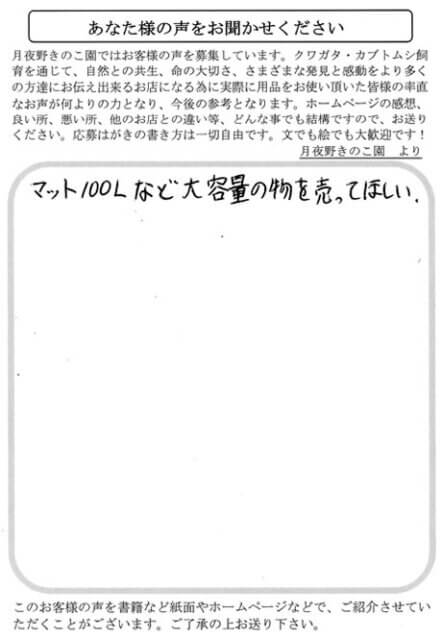 あなた様の声をお聞かせください
月夜野きのこ園ではお客様の声を募集しています。クワガタ・カブトムシ飼
育を通じて、自然との共生、命の大切さ、さまざまな発見と感動をより多く
の方達にお伝え出来るお店になる為に実際に用品をお使い頂いた皆様の率直
なお声が何よりの力となり、今後の参考となります。ホームページの感想、
良い所、悪い所、他のお店との違い等、どんな事でも結構ですので、お送り
ください。応募はがきの書き方は一切自由です。文でも絵でも大歓迎です！
月夜野きのこ園　より
マット100Lなど大容量の物を売ってほしい.
このお客様の声を書籍など紙面やホームページなどで、ご紹介させてい
ただくことがございます。ご了承の上お送り下さい。